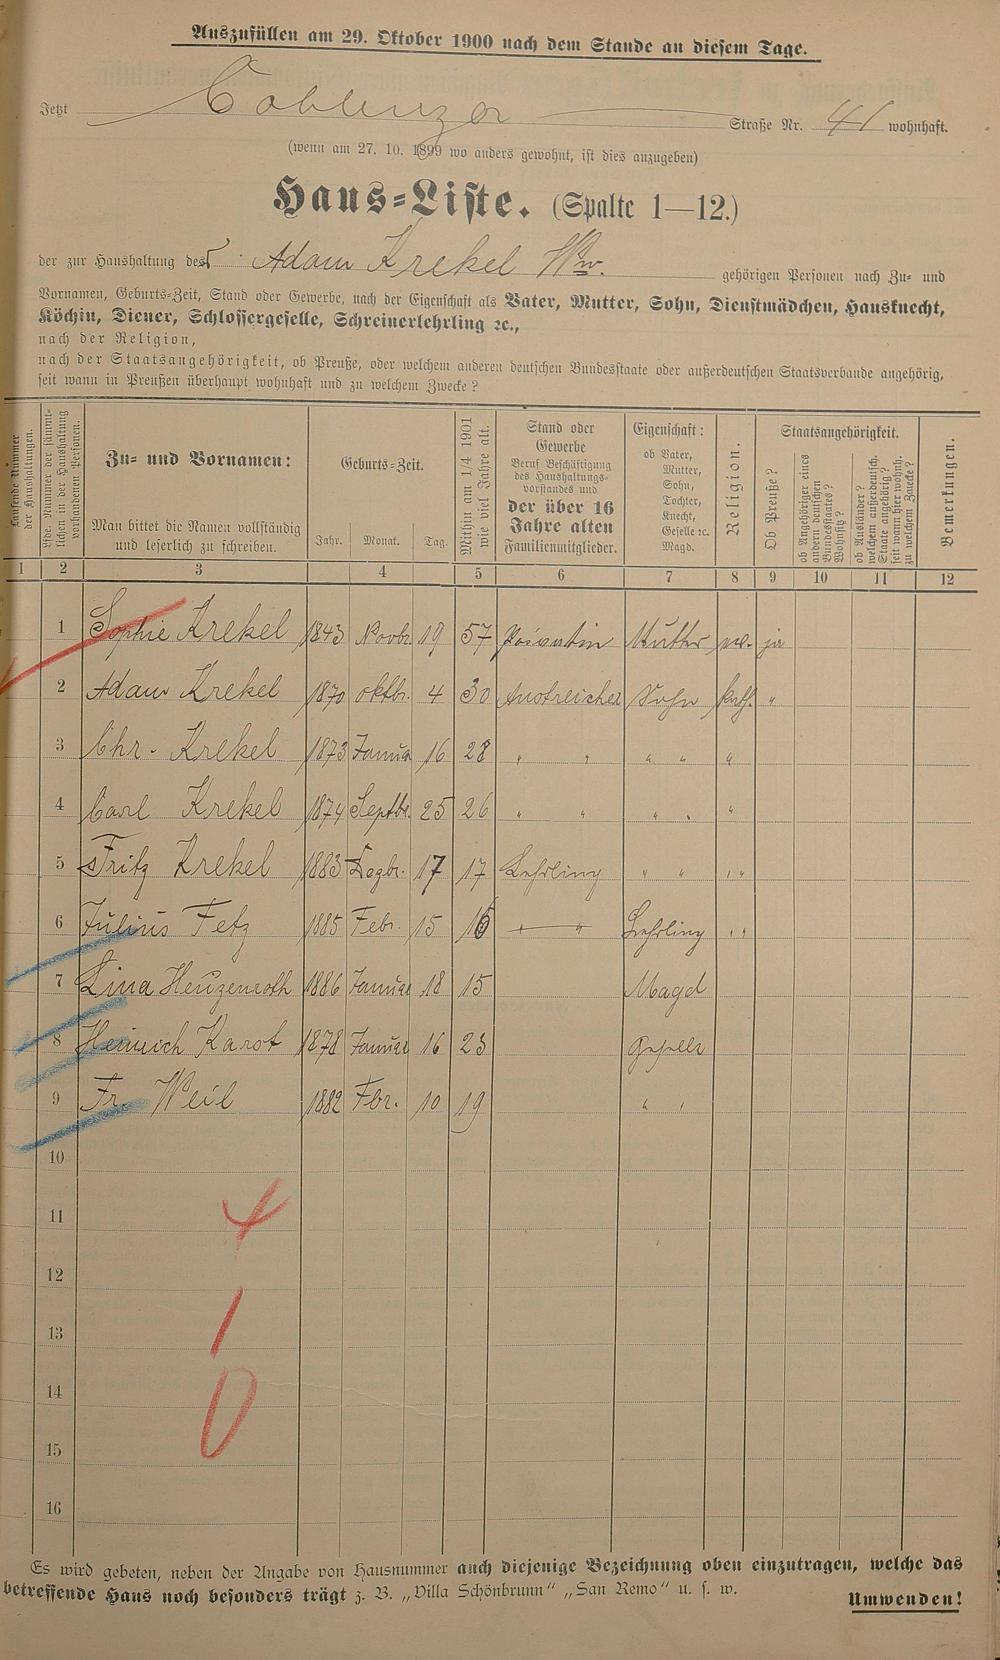 Auszufüllen am 29. Oktober 1900 nach dem Stande an diesem Tage.
Jetzt Coblenzer Straße Nr. 41 wohnhaft.
(wenn am 27. 10. 1899 wo anders gewohnt, ist dies anzugeben)
Haus-Liste. (Spalte 1—12.)
der zur Haushaltung des Adam Krekel Ww. gehörigen Personen nach Zu- und
Vornamen, Geburts-Zeit, Stand oder Gewerbe, nach der Eigenschaft als Vater, Mutter, Sohn, Dienstmädchen, Hausknecht,
Köchin, Diener, Schlossergeselle, Schreinerlehrling ꝛc.,
nach der Religion,
nach der Staatsangehörigkeit, ob Preuße, oder welchem anderen deutschen Bundesstaate oder außerdeutschen Staatsverbande angehörig,
seit wann in Preußen überhaupt wohnhaft und zu welchem Zwecke?
Laufende Nummer der Haushaltungen.
Lfde. Nummer der sämmtlichen in der Haushaltung vorhandenen Personen.
Zu- und Vornamen:
Man bittet die Namen vollständig
und leserlich zu schreiben.
Geburts-Zeit.
Jahr. Monat. Tag.
Mithin am 1/4 1901 wie viel Jahre alt.
Stand oder
Gewerbe
Beruf Beschäftigung
des Haushaltungs-
vorstandes und
der über 16
Jahre alten
Familienmitglieder.
Eigenschaft:
ob Vater,
Mutter,
Sohn,
Tochter,
Knecht,
Geselle ꝛc.
Magd.
Religion.
Staatsangehörigkeit.
Ob Preuße?
ob Angehöriger eines andern deutschen Bundesstaates? Wohnsitz?
ob Ausländer? welchem außerdeutsch. Staate angehörig? seit wann hier wohnh. zu welchem Zwecke?
Bemerkungen.
1 2 3 4 5 6 7 8 9 10 11 12
1 Sophie Krekel 1843 Novbr. 19 57 Privatin Mutter ja
2 Adam Krekel 1870 oktbr. 4 30 Anstreicher Sohn kath. "
3 Chr. Krekel 1873 Januar 16 28 " " " " "
4 Carl Krekel 1874 Septbr. 25 26 " " " " "
5 Fritz Krekel 1883 Dezbr. 17 17 Lehrling " " "
6 Julius Fetz 1885 Febr. 15 16 " " Lehrling "
7 Lina Heuzeroth 1886 Januar 18 15 Magd
8 Heinrich Karst 1878 Januar 16 23 Geselle
9 Fr. Weil 1882 Fbr. 10 19 " "
10
11 4
12
13 1
14 0
15
16
Es wird gebeten, neben der Angabe von Hausnummer auch diejenige Bezeichnung oben einzutragen, welche das
betreffende Haus noch besonders trägt z. B. „Villa Schönbrunn" „San Remo" u. s. w.
Umwenden!